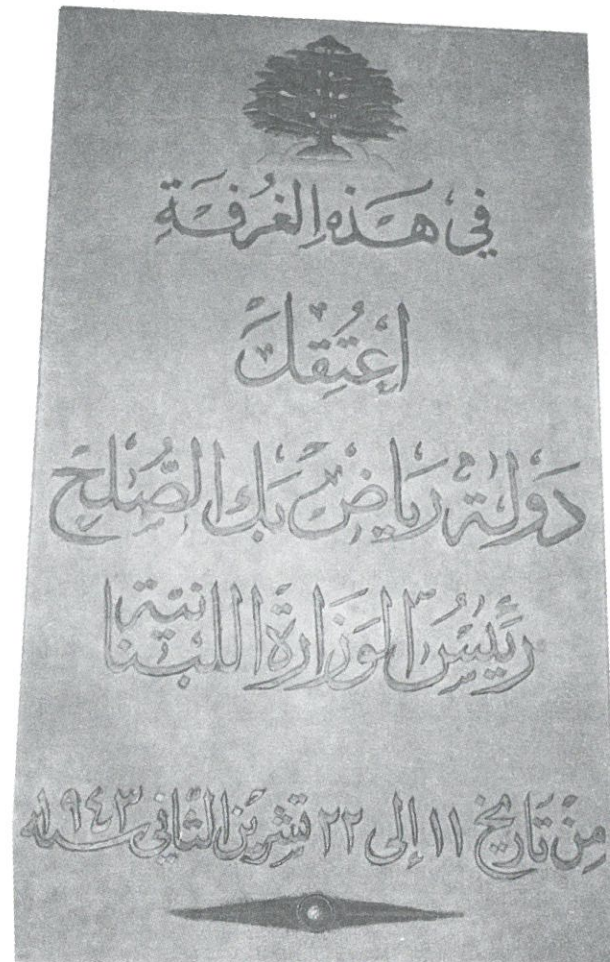 في هَذِهِ الغُرفَةِ
اعْتُقِلَ
دَولة ريَاض بَك الصُّلح
رَئيسُ الوزَارة اللبنانية
مِنْ تَاريخ ١١ إلى ٢٢ تشرين الثاني سنة ١٩٤٣